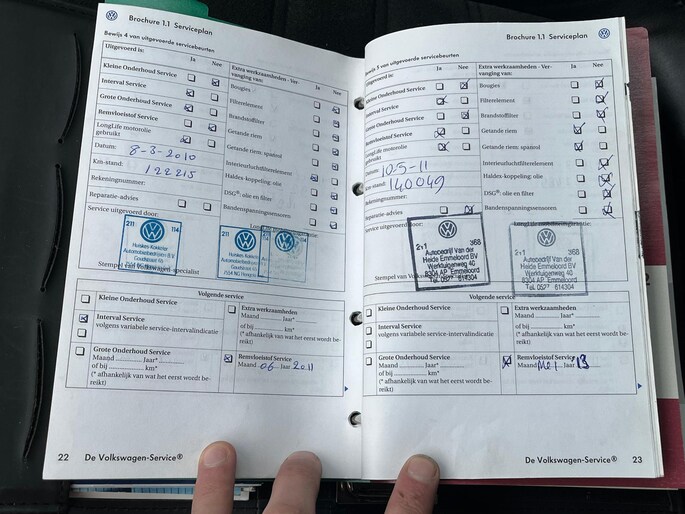 Brochure 1.1 Serviceplan
Bewijs 4 van uitgevoerde servicebeurten
Uitgevoerd is: Ja Nee
Kleine Onderhoud Service
Interval Service
Grote Onderhoud Service
Remvloeistof Service
LongLife motorolie
gebruikt
Datum: 8-3-2010
Km-stand: 122215
Rekeningnummer:
Reparatie-advies
Service uitgevoerd door:
Extra werkzaamheden - Ver-
vanging van: Ja Nee
Bougies
Filterelement
Brandstoffilter
Getande riem
Getande riem: spanrol
Interieurluchtfilterelement
Haldex-koppeling: olie
DSG®: olie en filter
Bandenspanningssensoren
211 114
Stempel van Volkswagen-specialist
Volgende service
Kleine Onderhoud Service
Interval Service
volgens variabele service-intervalindicatie
Grote Onderhoud Service
Maand ........ Jaar*........
of bij ................ km*
(* afhankelijk van wat het eerst wordt be-
reikt)
Extra werkzaamheden:
Maand ........ Jaar*........
of bij ................ km*
(* afhankelijk van wat het eerst wordt be-
reikt)
Remvloeistof Service
Maand 06 Jaar 2011
22 De Volkswagen-Service®
Brochure 1.1 Serviceplan
Bewijs 5 van uitgevoerde servicebeurten
Uitgevoerd is: Ja Nee
Kleine Onderhoud Service
Interval Service
Grote Onderhoud Service
Remvloeistof Service
LongLife motorolie
gebruikt
Datum: 10-5-11
Km-stand: 140049
Rekeningnummer:
Reparatie-advies
Service uitgevoerd door:
Extra werkzaamheden - Ver-
vanging van: Ja Nee
Bougies
Filterelement
Brandstoffilter
Getande riem
Getande riem: spanrol
Interieurluchtfilterelement
Haldex-koppeling: olie
DSG®: olie en filter
Bandenspanningssensoren
211 368
Autobedrijf Van der
Heide Emmeloord BV
Werktuigenweg 40
8304 AP Emmeloord
Tel. 0527 614304
Autobedrijf Van der
Heide Emmeloord BV
Werktuigenweg 40
8304 AP Emmeloord
Tel. 0527 614304
Volgende service
Kleine Onderhoud Service
Interval Service
volgens variabele service-intervalindicatie
Grote Onderhoud Service
Maand ........ Jaar*........
of bij ................ km*
(* afhankelijk van wat het eerst wordt be-
reikt)
Extra werkzaamheden:
Maand ........ Jaar*........
of bij ................ km*
(* afhankelijk van wat het eerst wordt be-
reikt)
Remvloeistof Service
Maand Mei Jaar 13
De Volkswagen-Service® 23